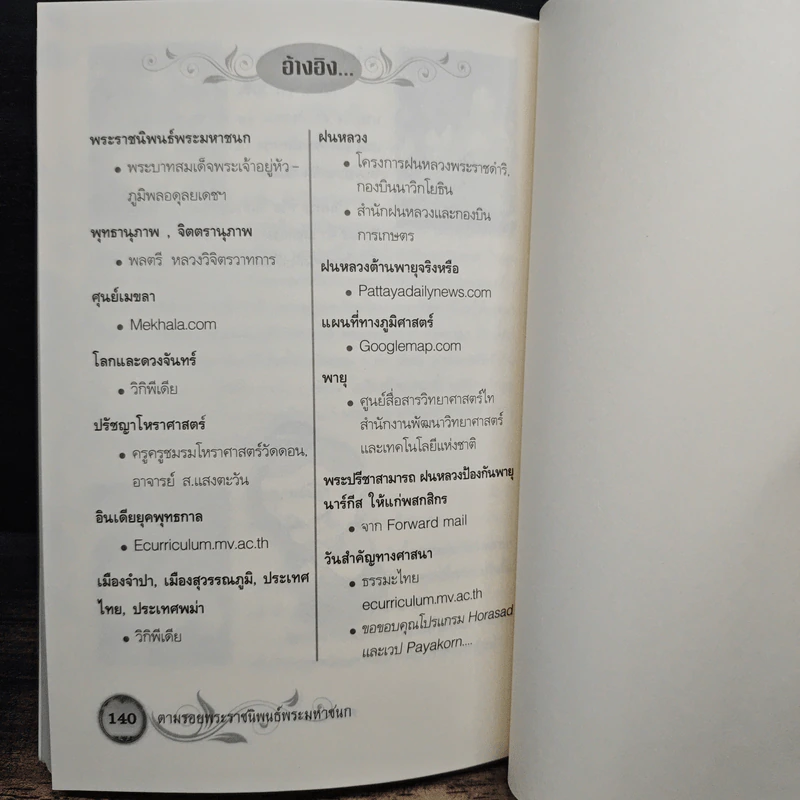 อ้างอิง...
พระราชนิพนธ์พระมหาชนก
• พระบาทสมเด็จพระเจ้าอยู่หัว –
ภูมิพลอดุลยเดชฯ
พุทธานุภาพ , จิตตรานุภาพ
• พลตรี หลวงวิจิตรวาทการ
ศูนย์เมขลา
• Mekhala.com
โลกและดวงจันทร์
• วิกิพีเดีย
ปรัชญาโหราศาสตร์
• ครูครูชมรมโหราศาสตร์วัดดอน,
อาจารย์ ส.แสงตะวัน
อินเดียยุคพุทธกาล
• Ecurriculum.mv.ac.th
เมืองจำปา, เมืองสุวรรณภูมิ, ประเทศ
ไทย, ประเทศพม่า
• วิกิพีเดีย
ฝนหลวง
• โครงการฝนหลวงพระราชดำริ,
กองบินนาวิกโยธิน
• สำนักฝนหลวงและกองบิน
การเกษตร
ฝนหลวงต้านพายุจริงหรือ
• Pattayadailynews.com
แผนที่ทางภูมิศาสตร์
• Googlemap.com
พายุ
• ศูนย์สื่อสารวิทยาศาสตร์ไท
สำนักงานพัฒนาวิทยาศาสตร์
และเทคโนโลยีแห่งชาติ
พระปรีชาสามารถ ฝนหลวงป้องกันพายุ
นาร์กีส ให้แก่พสกสิกร
• จาก Forward mail
วันสำคัญทางศาสนา
• ธรรมะไทย
ecurriculum.mv.ac.th
• ขอขอบคุณโปรแกรม Horasad
และเวป Payakorn....
140 ตามรอยพระราชนิพนธ์พระมหาชนก